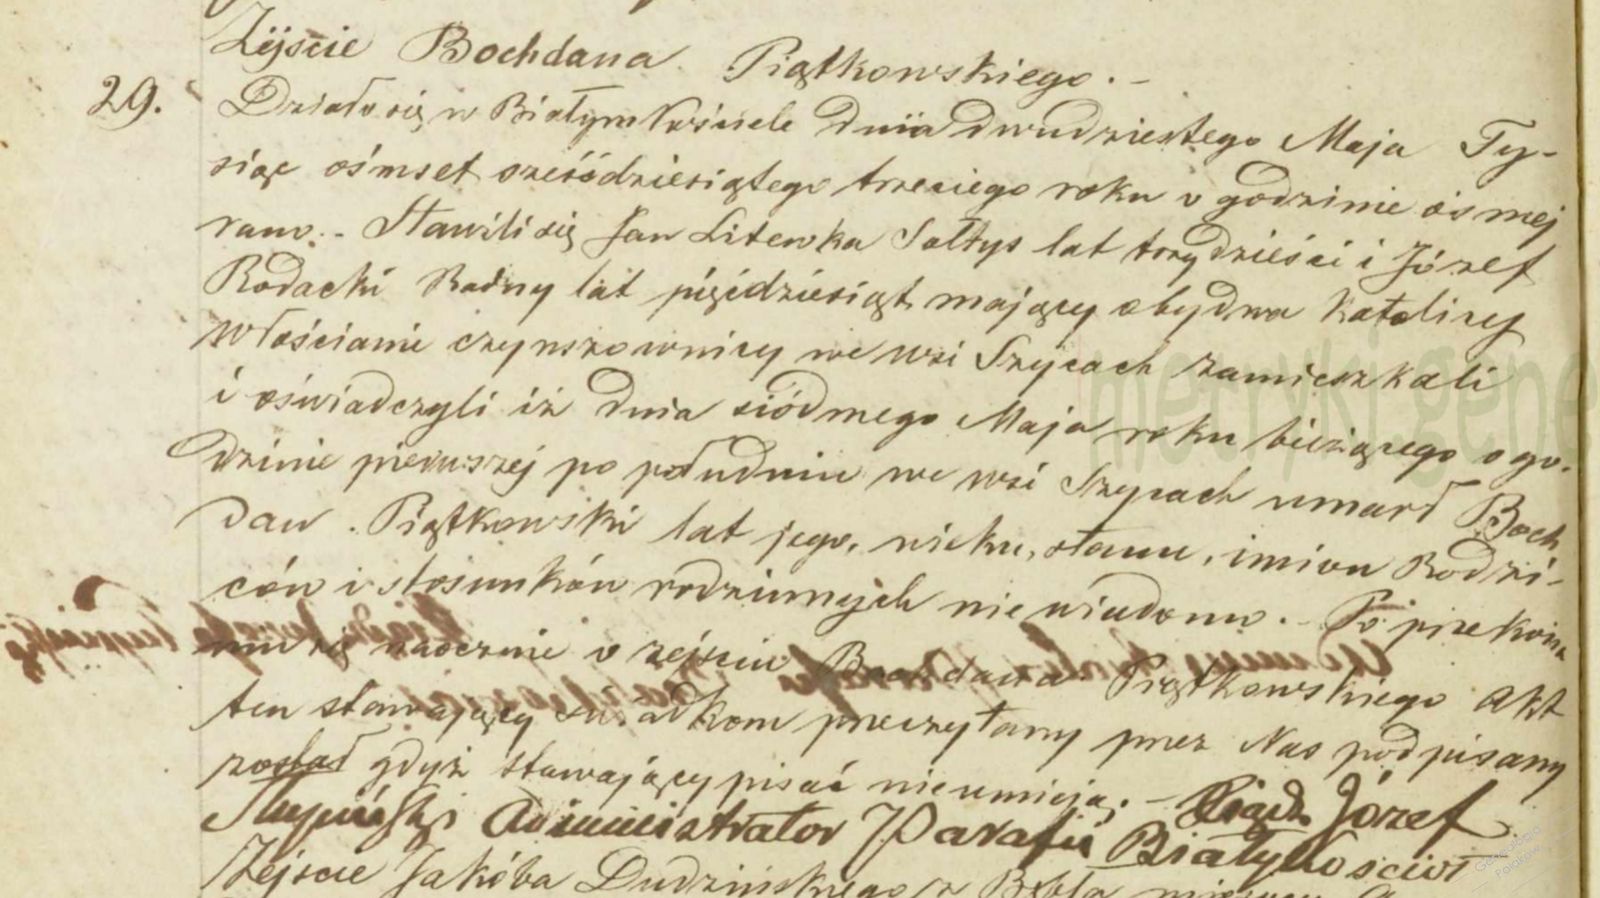 Zéjscie Bochdana Piątkowskiego. -
29. Działo się w Białym Kościele dnia dwudziestego Maja Ty-
siąc ośmset sześćdziesiątego trzeciego roku o godzinie ósmej
rano. - Stawili się Jan Litewka Sołtys lat trzydzieści i Józef
Rodacki Radny lat pięćdziesiąt mający obydwa Katolicy
Włościanie czynszownicy we wsi Szycach zamieszkali
i oświadczyli iż dnia siódmego Maja roku bieżącego o go-
dzinie pierwszej po południu we wsi Szycach umarł Boch
dan Piątkowski lat jego, wieku, stanu, imion Rodzi-
ców i stosunków rodzinnych nie wiadomo. - Po przekona
niu się naocznie o zéjsciu Bochdana Piątkowskiego Akt
ten stawający świadkom przeczytany przez Nas podpisany
został gdyż stawający pisać nieumieją. - Xiądz Józef
Administrator Parafii Biały Kościół
Zéjscie Jakóba Dudzińskiego z Bębła
metryki.gene
Genealodzy
Polaków